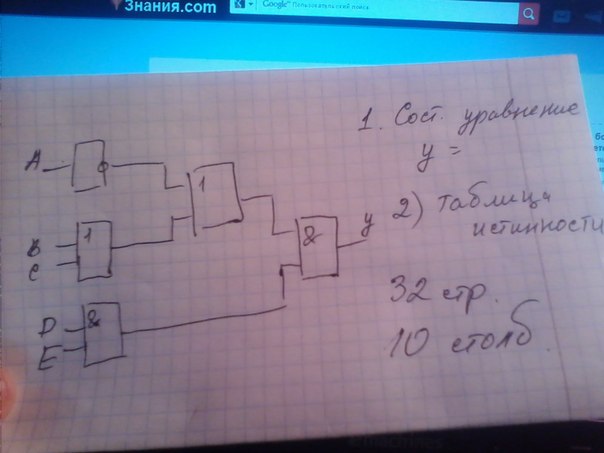 Знания.com
Google™ Пользовательский поиск
1. Сост. уравнение
y =
2) таблица
истинности
32 стр.
10 столб.
A
1
B
1
C
&
y
D
&
E